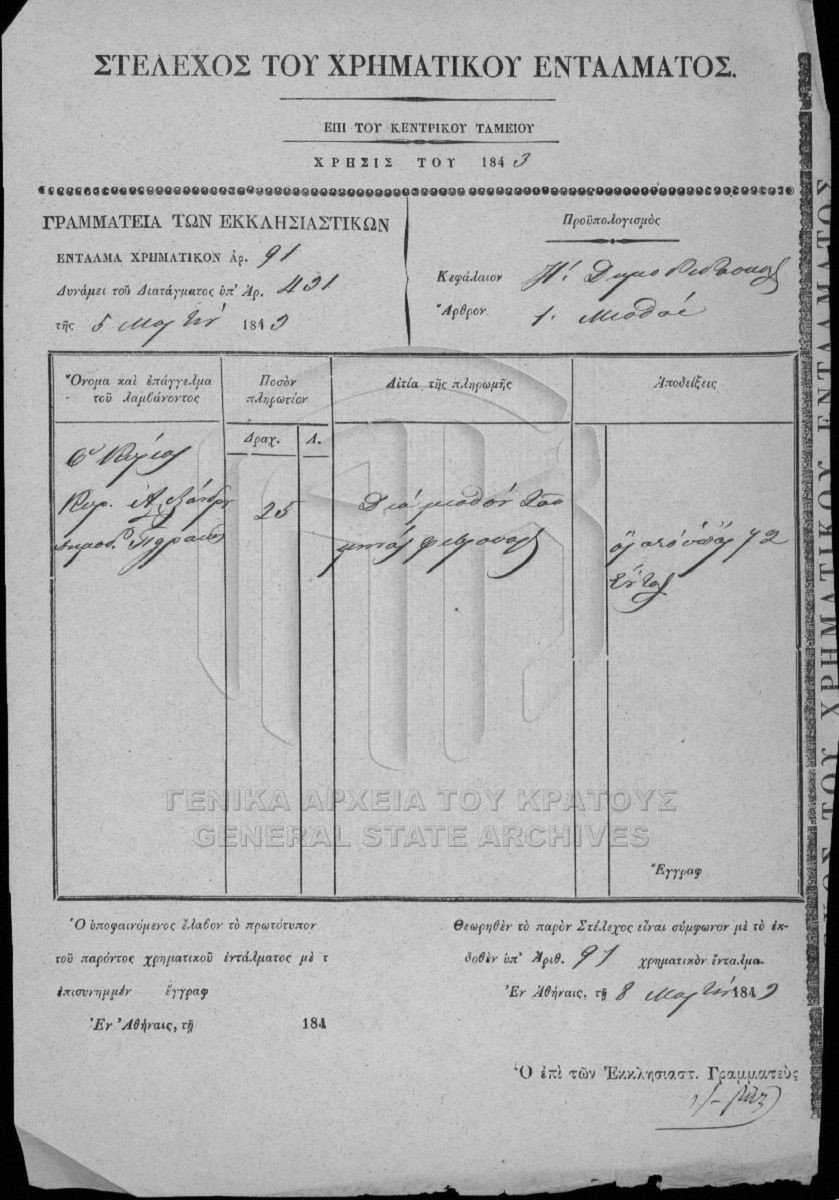 ΣΤΕΛΕΧΟΣ ΤΟΥ ΧΡΗΜΑΤΙΚΟΥ ΕΝΤΑΛΜΑΤΟΣ.
ΕΠΙ ΤΟΥ ΚΕΝΤΡΙΚΟΥ ΤΑΜΕΙΟΥ
ΧΡΗΣΙΣ ΤΟΥ 1843
ΓΡΑΜΜΑΤΕΙΑ ΤΩΝ ΕΚΚΛΗΣΙΑΣΤΙΚΩΝ
ΕΝΤΑΛΜΑ ΧΡΗΜΑΤΙΚΟΝ Ἀρ. 91
Δυνάμει τοῦ Διατάγματος ὑπ' Ἀρ. 431
τῆς 5 Μαρτίου 1843
Προϋπολογισμὸς
Κεφάλαιον Η'.
Ἄρθρον. 1. Μισθοί
Ὄνομα καὶ ἐπάγγελμα τοῦ λαμβάνοντος
Ποσὸν πληρωτέον
Αἰτία τῆς πληρωμῆς
Ἀποδείξεις
Δραχ. Λ.
Ὁ Κύριος
Κυρ.
25
Διὰ μισθόν του
μηνὸς Φεβρουαρ
72
Ἔγγραφ
Ὁ ὑποφαινόμενος ἔλαβον τὸ πρωτότυπον
τοῦ παρόντος χρηματικοῦ ἐντάλματος μὲ τ
ἐπισυνημμέν ἔγγραφ
Ἐν Ἀθήναις, τῇ 184
Θεωρηθὲν τὸ παρὸν Στέλεχος εἶναι σύμφωνον μὲ τὸ ἐκ-
δοθὲν ὑπ' Ἀριθ. 91 χρηματικὸν ἔνταλμα.
Ἐν Ἀθήναις, τῇ 8 Μαρτίου 1843
Ὁ ἐπὶ τῶν Ἐκκλησιαστ. Γραμματεὺς
ΓΕΝΙΚΑ ΑΡΧΕΙΑ ΤΟΥ ΚΡΑΤΟΥΣ
GENERAL STATE ARCHIVES
ΤΟΥ ΧΡΗΜΑΤΙΚΟΥ ΕΝΤΑΛΜΑΤΟΣ